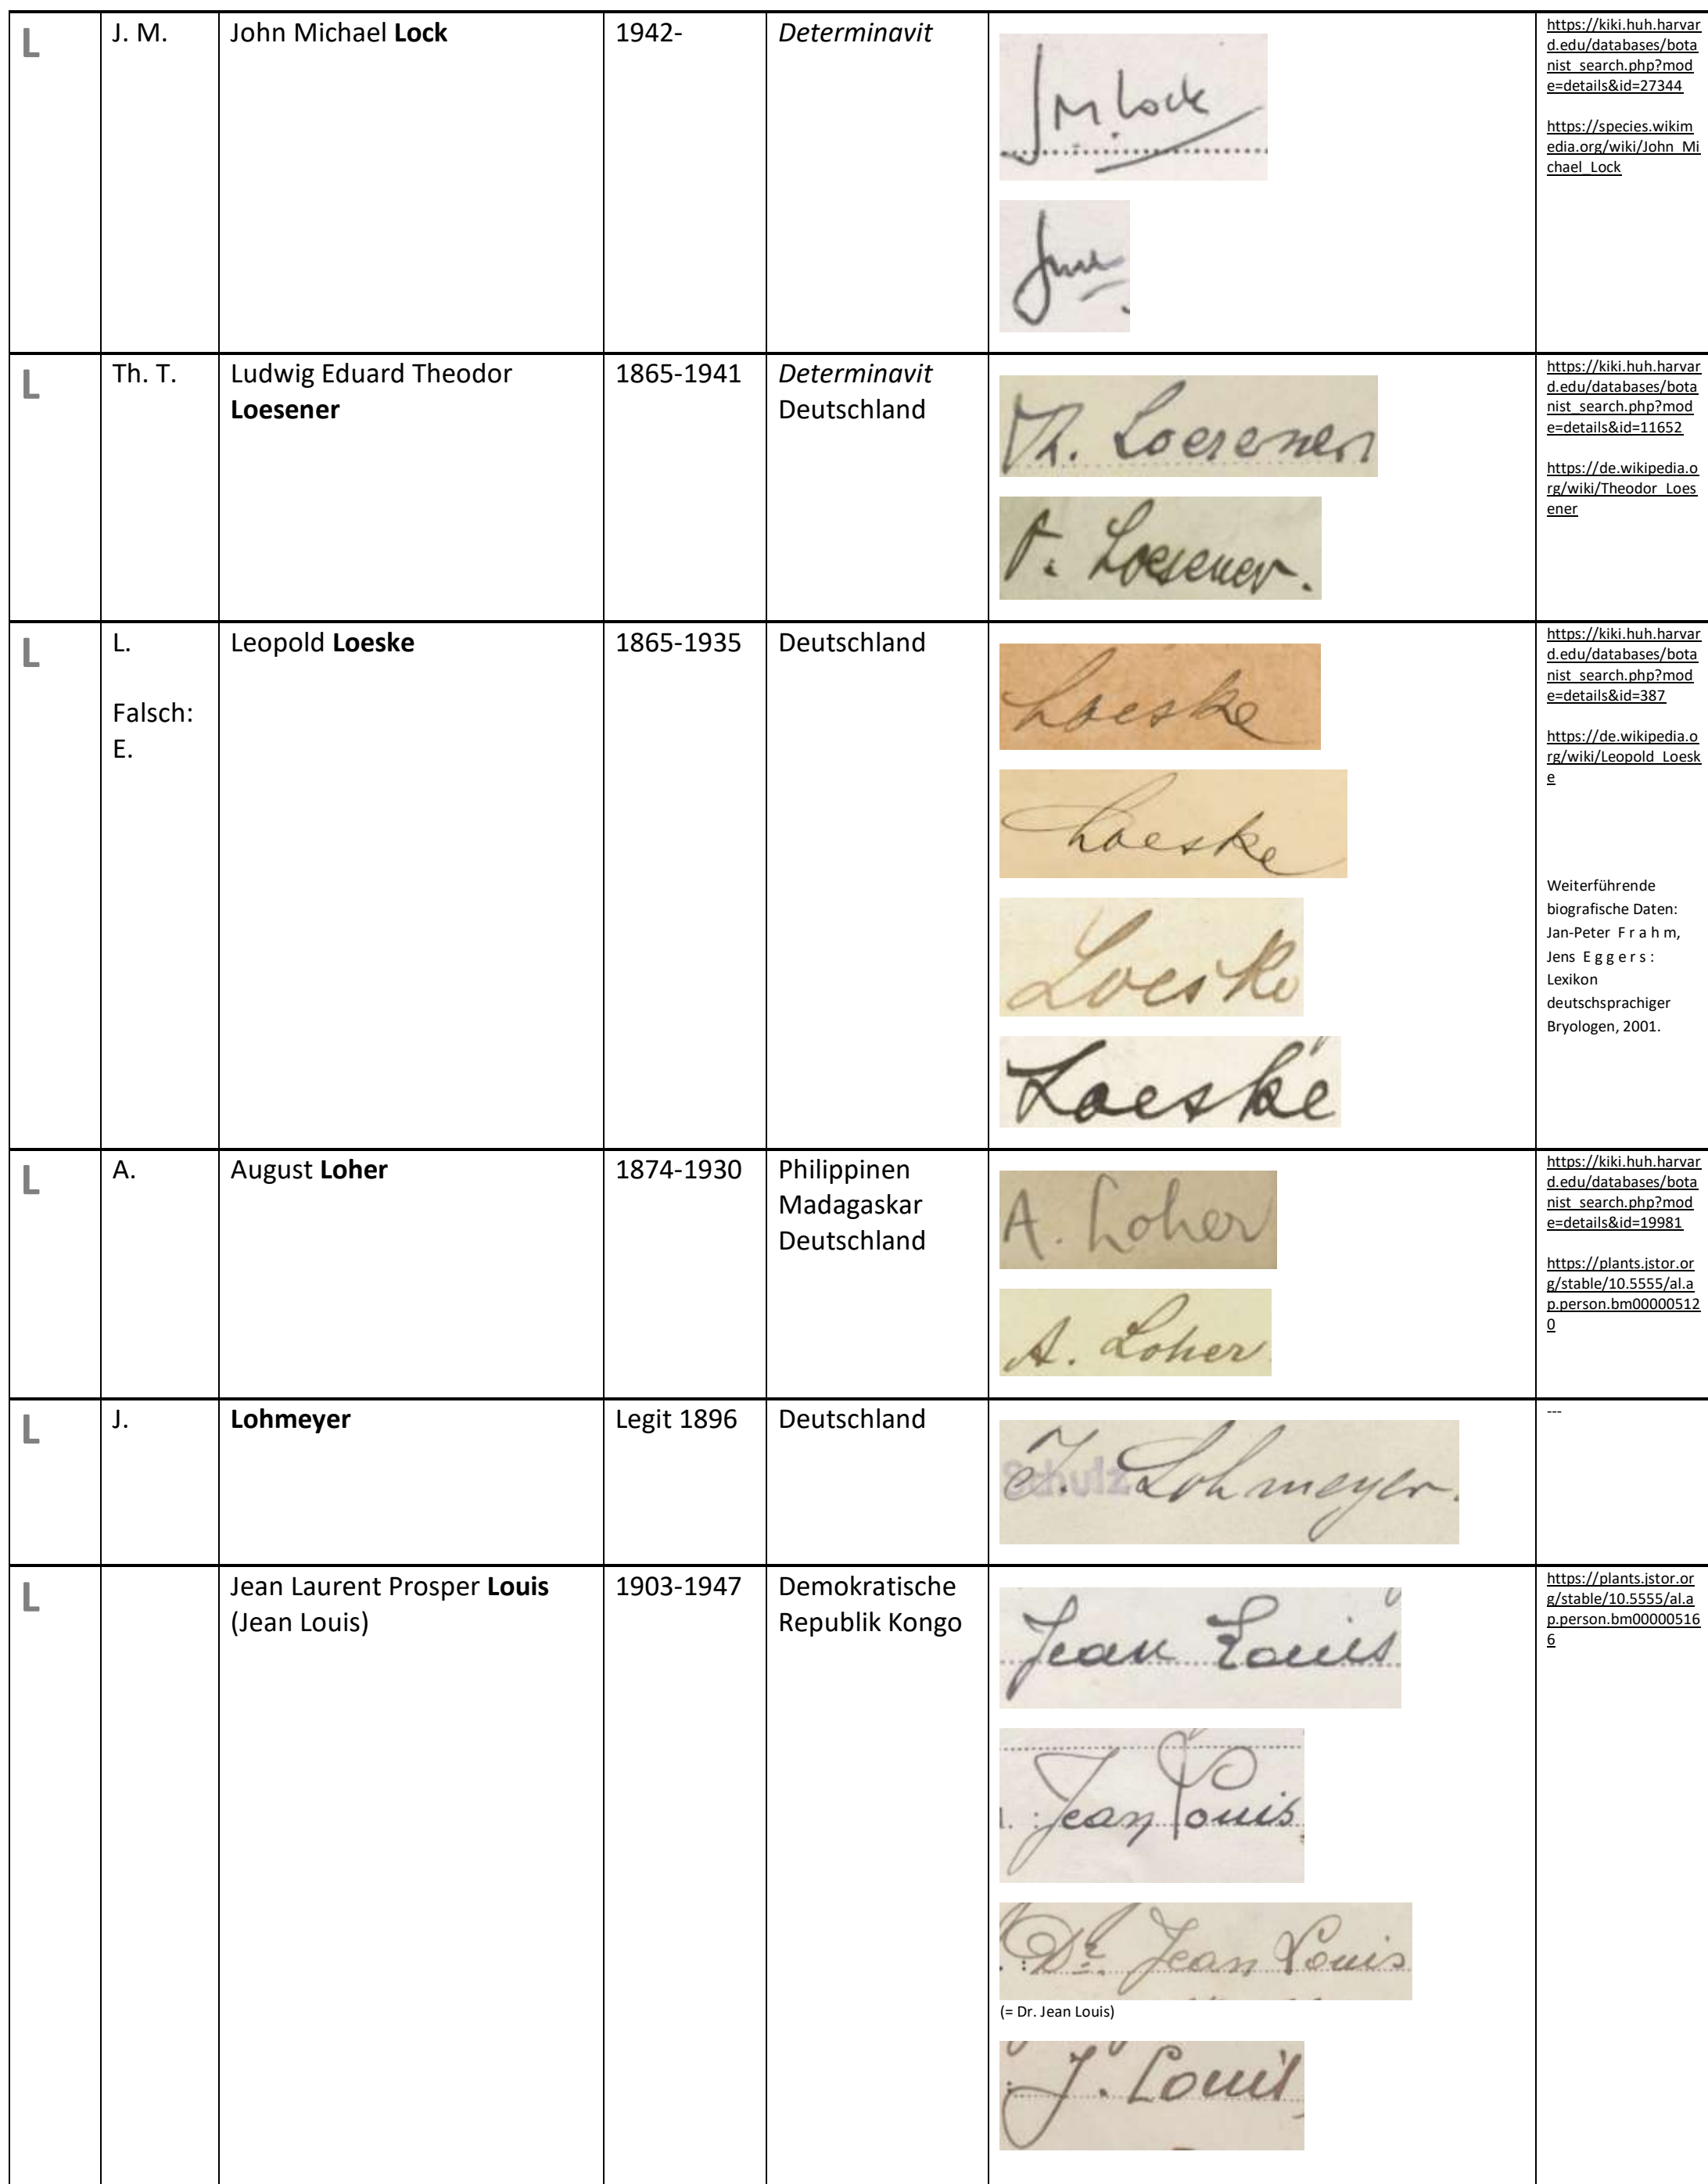 L
J. M.
John Michael Lock
1942-
Determinavit
JMLock
https://kiki.huh.harvar
d.edu/databases/bota
nist_search.php?mod
e=details&id=27344
https://species.wikim
edia.org/wiki/John_Mi
chael_Lock
L
Th. T.
Ludwig Eduard Theodor
Loesener
1865-1941
Determinavit
Deutschland
Th. Loesener
T. Loesener.
https://kiki.huh.harvar
d.edu/databases/bota
nist_search.php?mod
e=details&id=11652
https://de.wikipedia.o
rg/wiki/Theodor_Loes
ener
L
L.
Falsch:
E.
Leopold Loeske
1865-1935
Deutschland
Loeske
Loeske
Loeske
Loeske
https://kiki.huh.harvar
d.edu/databases/bota
nist_search.php?mod
e=details&id=387
https://de.wikipedia.o
rg/wiki/Leopold_Loesk
e
Weiterführende
biografische Daten:
Jan-Peter F r a h m,
Jens E g g e r s :
Lexikon
deutschsprachiger
Bryologen, 2001.
L
A.
August Loher
1874-1930
Philippinen
Madagaskar
Deutschland
A. Loher
A. Loher
https://kiki.huh.harvar
d.edu/databases/bota
nist_search.php?mod
e=details&id=19981
https://plants.jstor.or
g/stable/10.5555/al.a
p.person.bm00000512
0
L
J.
Lohmeyer
Legit 1896
Deutschland
Schulz
J. Lohmeyer.
---
L
Jean Laurent Prosper Louis
(Jean Louis)
1903-1947
Demokratische
Republik Kongo
Jean Louis
Jean Louis
Dr. Jean Louis
(= Dr. Jean Louis)
J. Louis
https://plants.jstor.or
g/stable/10.5555/al.a
p.person.bm00000516
6